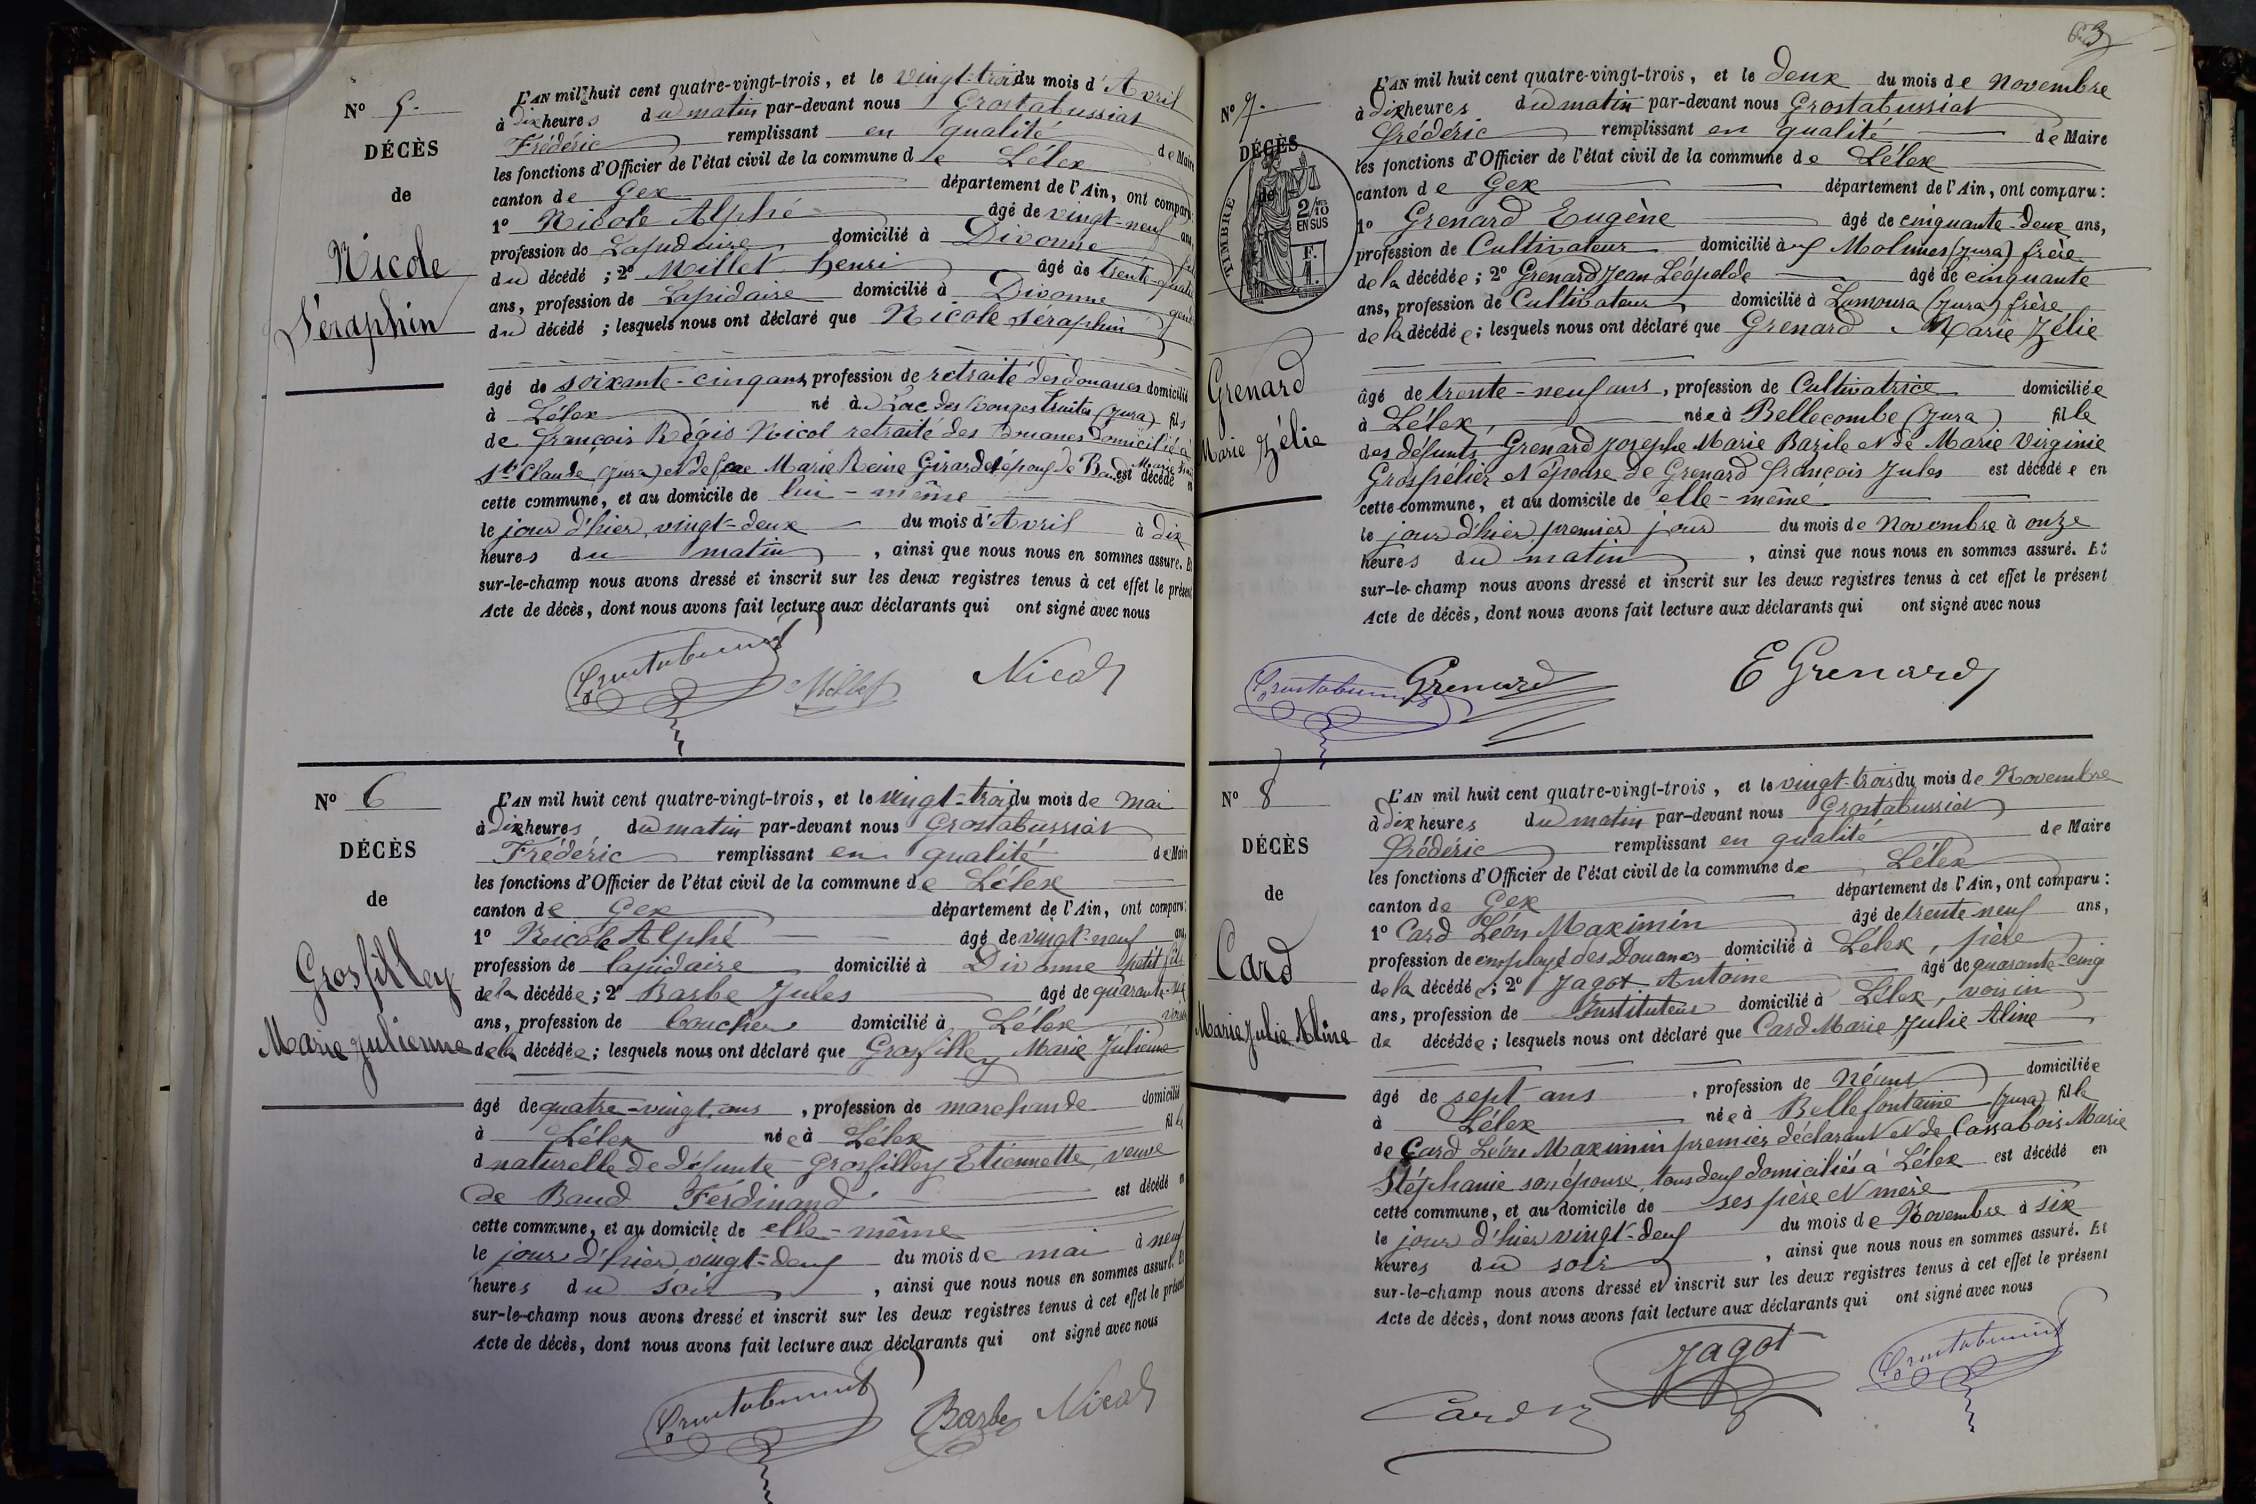 N° 5.
DÉCÈS
de
Nicole
Séraphin
L'AN mil huit cent quatre-vingt-trois, et le vingt-trois du mois d'Avril
à dix heures du matin par-devant nous Grostabussiat
Frédéric remplissant en qualité de Maire
les fonctions d'Officier de l'état civil de la commune de Lélex
canton de Gex département de l'Ain, ont comparu:
1° Nicole Alphé âgé de vingt-neuf ans,
profession de Lapidaire domicilié à Divonne fils
du décédé ; 2° Millet Henri âgé de trente-quatre
ans, profession de Lapidaire domicilié à Divonne gendre
du décédé ; lesquels nous ont déclaré que Nicole Séraphin
âgé de soixante-cinq ans, profession de retraité des douanes domicilié
à Lélex né à Lac des Rouges Truites (Jura) fils
de François Régis Nicol retraité des Douanes domicilié à
St Claude (Jura) et de Marie Reine Girardet époux de Baud Marie est décédé en
cette commune, et au domicile de lui-même
le jour d'hier, vingt-deux du mois d'Avril à dix
heures du matin, ainsi que nous nous en sommes assuré. Et
sur-le-champ nous avons dressé et inscrit sur les deux registres tenus à cet effet le présent
Acte de décès, dont nous avons fait lecture aux déclarants qui ont signé avec nous
Grostabussiat Millet Nicol
N° 6
DÉCÈS
de
Grosfilley
Marie Julienne
L'AN mil huit cent quatre-vingt-trois, et le vingt-trois du mois de mai
à dix heures du matin par-devant nous Grostabussiat
Frédéric remplissant en qualité de Maire
les fonctions d'Officier de l'état civil de la commune de Lélex
canton de Gex département de l'Ain, ont comparu:
1° Nicole Alphé âgé de vingt-neuf ans,
profession de lapidaire domicilié à Divonne petit fils
de la décédée ; 2° Barbe Jules âgé de quarante-six
ans, profession de boucher domicilié à Lélex voisin
de la décédée ; lesquels nous ont déclaré que Grosfilley Marie Julienne
âgé de quatre-vingt ans, profession de marchande domicilié
à Lélex née à Lélex fille
d naturelle de défunte Grosfilley Etiennette, veuve
de Baud Ferdinand est décédé en
cette commune, et au domicile de elle-même
le jour d'hier vingt-deux du mois de mai à neuf
heures du soir, ainsi que nous nous en sommes assuré. Et
sur-le-champ nous avons dressé et inscrit sur les deux registres tenus à cet effet le présent
Acte de décès, dont nous avons fait lecture aux déclarants qui ont signé avec nous
Grostabussiat Barbe Nicol
N° 7.
DÉCÈS
de
TIMBRE
2/10
EN SUS
F.
1.
Grenard
Marie Zélie
L'AN mil huit cent quatre-vingt-trois, et le deux du mois de Novembre
à dix heures du matin par-devant nous Grostabussiat
Frédéric remplissant en qualité de Maire
les fonctions d'Officier de l'état civil de la commune de Lélex
canton de Gex département de l'Ain, ont comparu:
1° Grenard Eugène âgé de cinquante-deux ans,
profession de Cultivateur domicilié à Molunes (Jura) frère
de la décédée ; 2° Grenard Jean Léopolde âgé de cinquante
ans, profession de Cultivateur domicilié à Lamoura (Jura) frère
de la décédée ; lesquels nous ont déclaré que Grenard Marie Zélie
âgé de trente-neuf ans, profession de Cultivatrice domiciliée
à Lélex, née à Bellecombe (Jura) fille
des défunts Grenard Josephe Marie Bazile et de Marie Virginie
Grospélier et épouse de Grenard François Jules est décédée en
cette commune, et au domicile de elle-même
le jour d'hier premier jour du mois de Novembre à onze
heures du matin, ainsi que nous nous en sommes assuré. Et
sur-le-champ nous avons dressé et inscrit sur les deux registres tenus à cet effet le présent
Acte de décès, dont nous avons fait lecture aux déclarants qui ont signé avec nous
Grostabussiat Grenard E Grenard
N° 8
DÉCÈS
de
Card
Marie Julie Aline
L'AN mil huit cent quatre-vingt-trois, et le vingt-trois du mois de Novembre
à dix heures du matin par-devant nous Grostabussiat
Frédéric remplissant en qualité de Maire
les fonctions d'Officier de l'état civil de la commune de Lélex
canton de Gex département de l'Ain, ont comparu:
1° Card Léon Maximin âgé de trente neuf ans,
profession de employé des Douanes domicilié à Lélex, père
de la décédée ; 2° Jagot Antoine âgé de quarante-cinq
ans, profession de Instituteur domicilié à Lélex, voisin
de décédée ; lesquels nous ont déclaré que Card Marie Julie Aline
âgé de sept ans, profession de Néant domiciliée
à Lélex née à Bellefontaine (Jura) fille
de Card Léon Maximin premier déclarant et de Cassabois Marie
Stéphanie son épouse, tous deux domiciliés à Lélex est décédé en
cette commune, et au domicile de ses père et mère
le jour d'hier vingt-deux du mois de Novembre à six
heures du soir, ainsi que nous nous en sommes assuré. Et
sur-le-champ nous avons dressé et inscrit sur les deux registres tenus à cet effet le présent
Acte de décès, dont nous avons fait lecture aux déclarants qui ont signé avec nous
Jagot Grostabussiat
Card